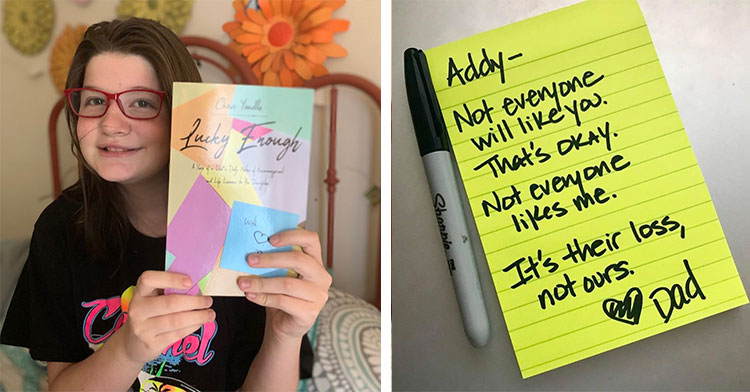 Chris Yandle
Lucky Enough
A Year of a Dad's Daily Notes of Encouragement
and Life Lessons to His Daughter
with
Addy-
Not everyone
will like you.
That's OKAY.
Not everyone
likes me.
It's their loss,
not ours.
Dad
Sharpie